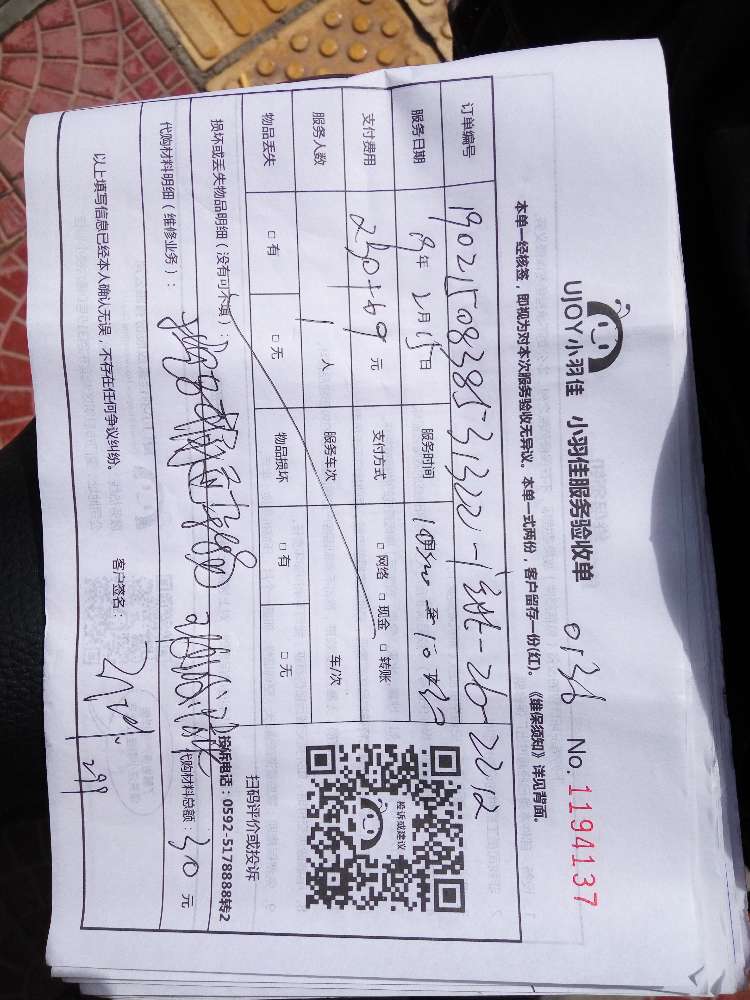 UJOY小羽佳 小羽佳服务验收单 0136 No.1194137
本单一经核签，即视为对本次服务验收无异议。本单一式两份，客户留存一份(红)。《维保须知》详见背面。
订单编号
服务日期 19年 2月15日 服务时间
支付费用 230+69 元 支付方式 □ 网络 □ 现金 □ 转账
服务人数 1 人 服务车次 车/次
物品丢失 □ 有 □ 无 物品损坏 □ 有 □ 无
投诉或建议
扫码评价或投诉
损坏或丢失物品明细（没有可不填）： 投诉电话：0592-5178888转2
代购材料明细（维修业务）： 代购材料总额：30 元
以上填写信息已经本人确认无误，不存在任何争议纠纷。 客户签名： 299